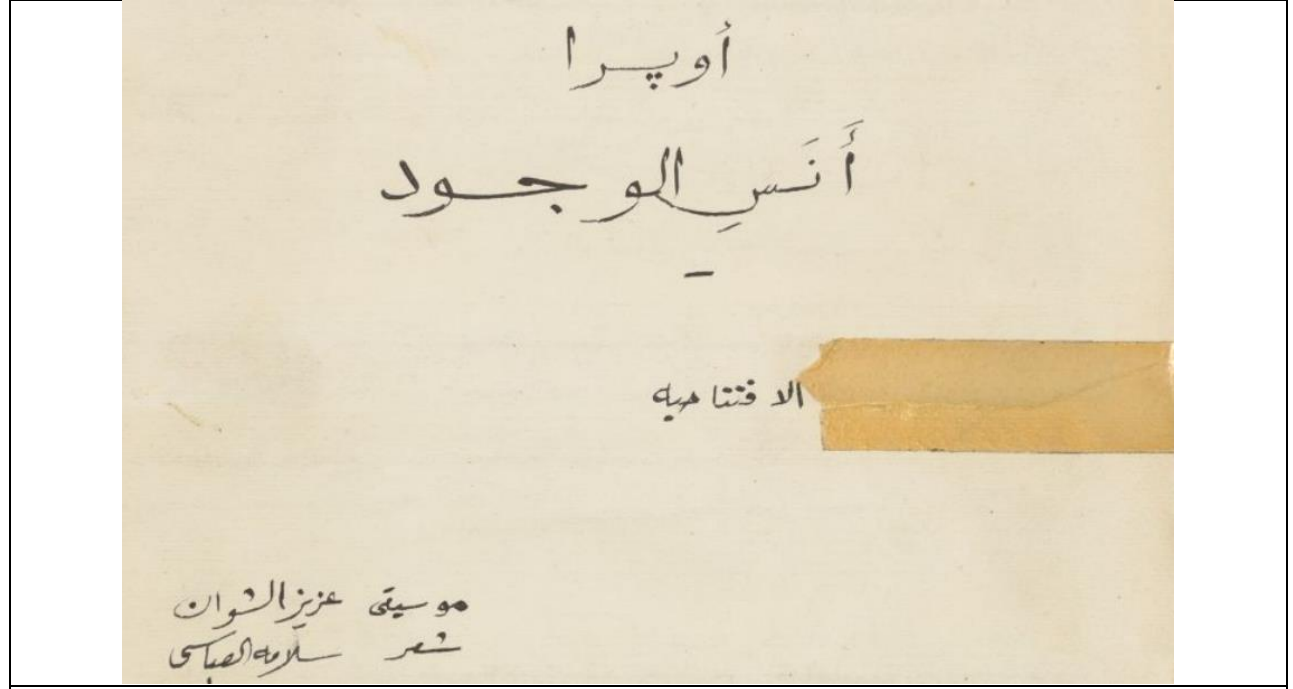 أوپرا
أَنَسِ الوجود
الافتتاحيه
موسيقى عزيز الشوان
شعر سلامه العباسى